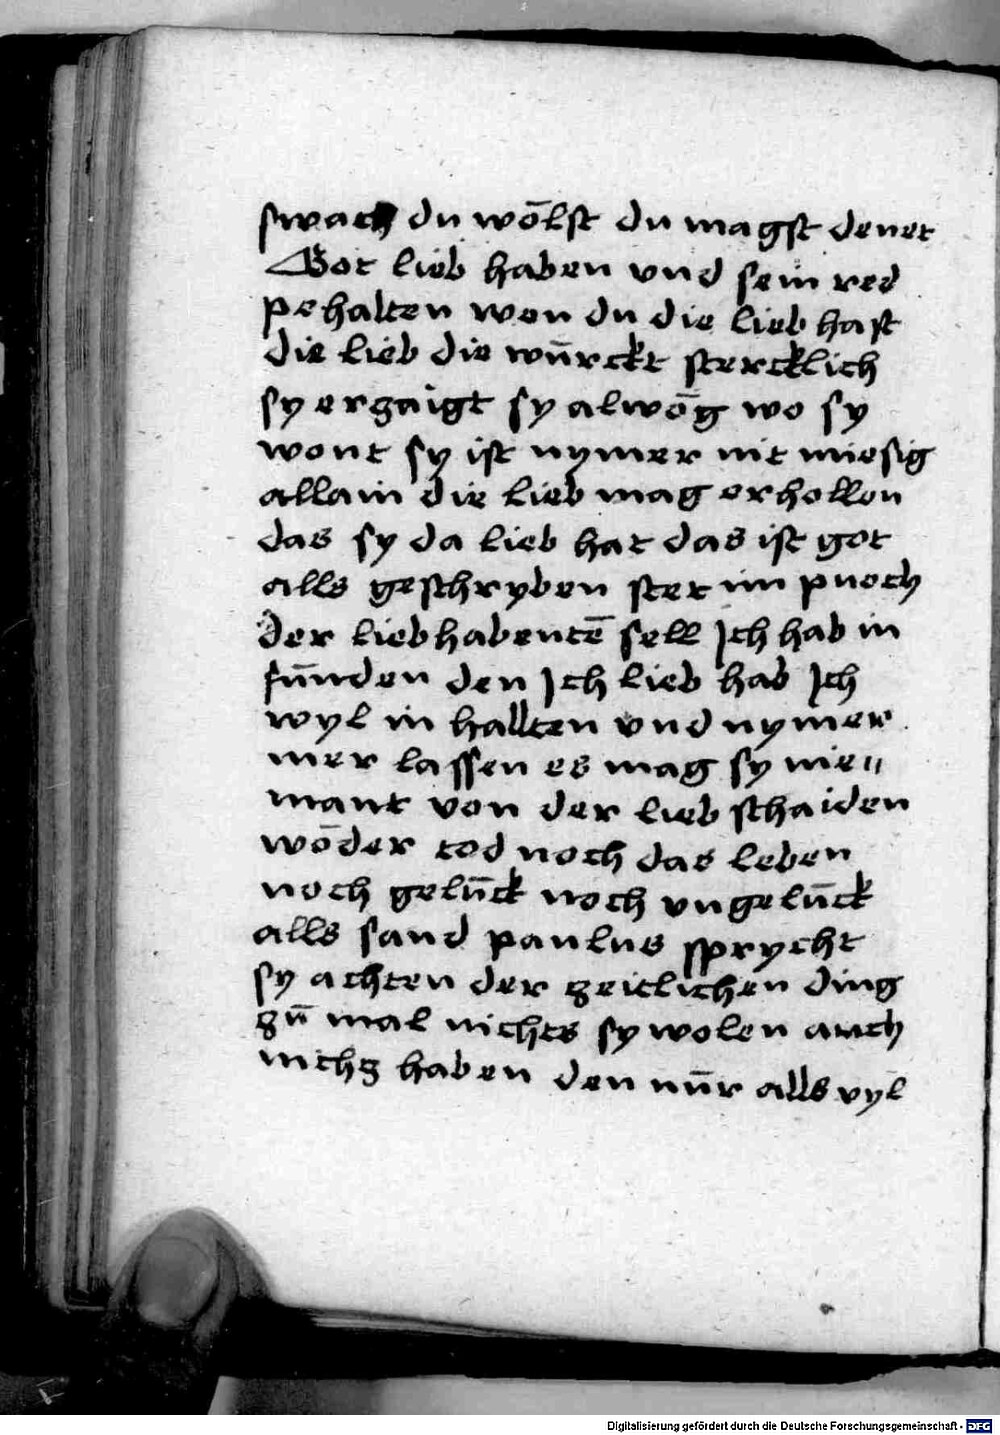 swach du wōlst du magst denet
Got lieb haben vnd sein red
pehalten wen du die lieb hast
die lieb die wūrckt stercklich
sy erzaigt sy alwōg wo sy
wont sy ist nymer nit miesig
allain die lieb mag erhollen
das sy da lieb hat das ist got
alls geschryben stet im puoch
der liebhabentē sell Jch hab in
fūnden den Jch lieb hab Jch
wyl in hallten vnd nymer
mer lassen es mag sy nie〃
mant von der lieb schaiden
wōder tod noch das leben
noch gelūck noch vngelūck
alls sand paulus sprycht
sy achten der zeitlichen ding
zū mal nichts sy wolen auch
nichz haben den nūr alls vyl
Digitalisierung gefördert durch die Deutsche Forschungsgemeinschaft - DFG